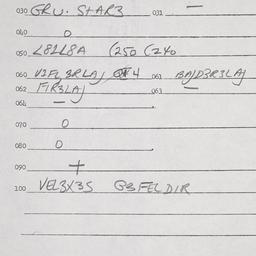 030 GRU. STAR3 031 —
040 O
050 L8LL8A (250 (240
060 V3FL 3RLAJ 4 061 BAJD3R3LAJ
062 MR3LAJ 063 —
064 —
070 O
080 O
090 +
100 VEL3X3S G3FELDIR